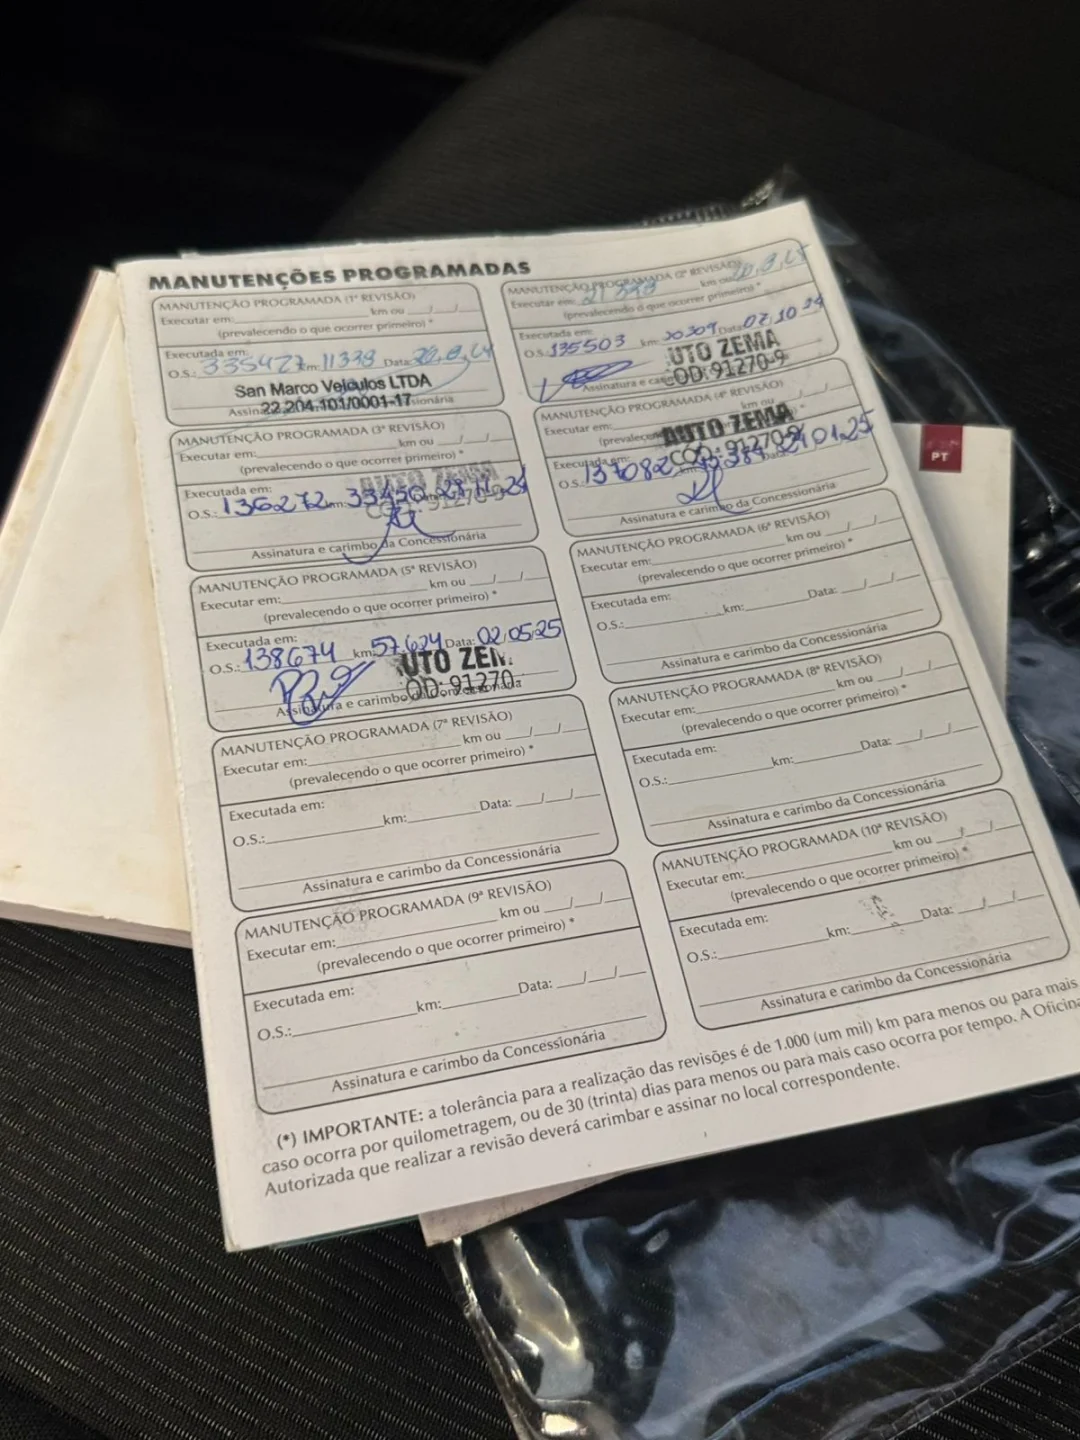 MANUTENÇÕES PROGRAMADAS
MANUTENÇÃO PROGRAMADA (1ª REVISÃO)
Executar em:____ km ou __/__/__
(prevalecendo o que ocorrer primeiro) *
Executada em:
O.S.: 335427 km: 11338 Data:
San Marco Veículos LTDA
22.204.101/0001-17
MANUTENÇÃO PROGRAMADA (2ª REVISÃO)
Executar em: km ou
(prevalecendo o que ocorrer primeiro) *
Executada em:
O.S.: 135503 km: 20309 Data: 02.10.24
UTO ZEMA
COD: 91270-9
Assinatura e
MANUTENÇÃO PROGRAMADA (3ª REVISÃO)
Executar em:____ km ou __/__/__
(prevalecendo o que ocorrer primeiro) *
Executada em:
O.S.: 136272 km: 33450 28.11.24
AUTO ZEMA
COD: 91270-9
Assinatura e carimbo da Concessionária
MANUTENÇÃO PROGRAMADA (4ª REVISÃO)
Executar em: km ou
Executada em:
O.S.: 137082 01.25
AUTO ZEMA
COD: 91270-9
Assinatura e carimbo da Concessionária
MANUTENÇÃO PROGRAMADA (5ª REVISÃO)
Executar em:____ km ou __/__/__
(prevalecendo o que ocorrer primeiro) *
Executada em:
O.S.: 138674 km: 57.624 Data: 02/05/25
UTO ZEM
OD: 91270
Assinatura e carimbo da Concessionária
MANUTENÇÃO PROGRAMADA (6ª REVISÃO)
Executar em:____ km ou __/__/__
(prevalecendo o que ocorrer primeiro) *
Executada em:
O.S.:____ km:____ Data: __/__/__
Assinatura e carimbo da Concessionária
MANUTENÇÃO PROGRAMADA (7ª REVISÃO)
Executar em:____ km ou __/__/__
(prevalecendo o que ocorrer primeiro) *
Executada em:
O.S.:____ km:____ Data: __/__/__
Assinatura e carimbo da Concessionária
MANUTENÇÃO PROGRAMADA (8ª REVISÃO)
Executar em:____ km ou __/__/__
(prevalecendo o que ocorrer primeiro) *
Executada em:
O.S.:____ km:____ Data: __/__/__
Assinatura e carimbo da Concessionária
MANUTENÇÃO PROGRAMADA (9ª REVISÃO)
Executar em:____ km ou __/__/__
(prevalecendo o que ocorrer primeiro) *
Executada em:
O.S.:____ km:____ Data: __/__/__
Assinatura e carimbo da Concessionária
MANUTENÇÃO PROGRAMADA (10ª REVISÃO)
Executar em:____ km ou __/__/__
(prevalecendo o que ocorrer primeiro) *
Executada em:
O.S.:____ km:____ Data: __/__/__
Assinatura e carimbo da Concessionária
(*) IMPORTANTE: a tolerância para a realização das revisões é de 1.000 (um mil) km para menos ou para mais
caso ocorra por quilometragem, ou de 30 (trinta) dias para menos ou para mais caso ocorra por tempo. A Oficina
Autorizada que realizar a revisão deverá carimbar e assinar no local correspondente.
PT